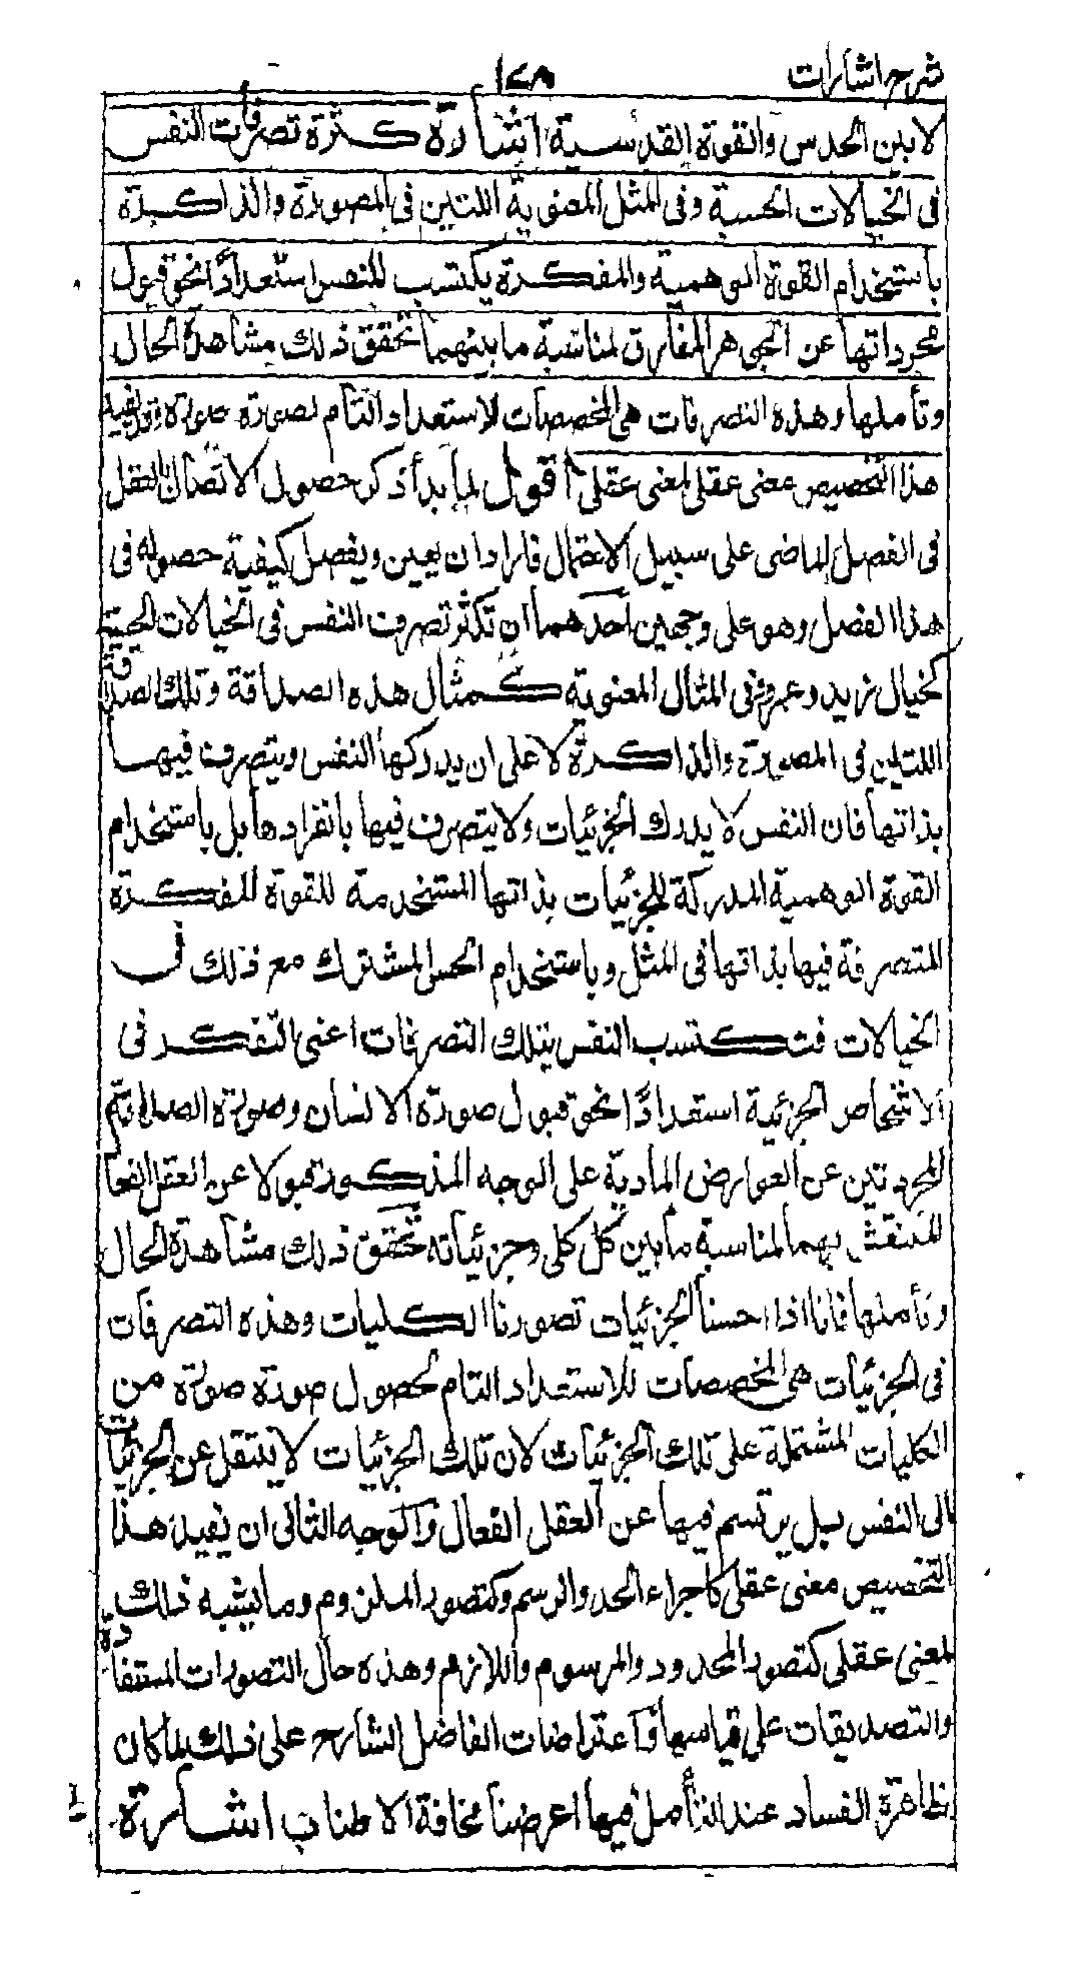 شرح اشارات ١٤٨
لا بين الحدس والقوة القدسية اشارة كثرة تصرفات النفس
فى الخيالات الحسية وفى المثل المعنوية اللتين فى المصورة والذاكرة
باستخدام القوة الوهمية والمفكرة يكتسب للنفس استعدادًا نحو قبول
مجرداتها عن الجوهر المفارق لمناسبة ما بينهما تحقق ذلك مشاهدة الحال
وتأملها وهذه التصرفات هى المخصصات للاستعداد التام لصورة صورة وقد يفيد
هذا التخصيص معنى عقلى لمعنى عقلى اقول لما بدأ ذكر حصول الاتصال بالعقل
فى الفصل الماضى على سبيل الاجمال فاراد ان يعين ويفصل كيفية حصوله فى
هذا الفصل وهو على وجهين احدهما ان تكثر تصرف النفس فى الخيالات الحسية
كخيال زيد وعمرو وفى المثال المعنوية كمثال هذه الصداقة وتلك الصداقة
اللتين فى المصورة والذاكرة لا على ان يدركها النفس ويتصرف فيها
بذاتها فان النفس لا يدرك الجزئيات ولا يتصرف فيها بانفرادها بل باستخدام
القوة الوهمية المدركة للجزئيات بذاتها المستخدمة للقوة المفكرة
المتصرفة فيها بذاتها فى المثل وباستخدام الحس المشترك مع ذلك فى
الخيالات فتكتسب النفس بتلك التصرفات اعنى التفكر فى
الاشخاص الجزئية استعدادًا نحو قبول صورة الانسان وصورة الصداقة
المجردتين عن العوارض المادية على الوجه المذكور قبولا عن العقل الفعال
المنتقش بهما لمناسبة ما بين كل كلى وجزئياته تحقق ذلك مشاهدة الحال
وتأملها فانا اذا احسنا الجزئيات تصورنا الكليات وهذه التصرفات
فى الجزئيات هى المخصصات للاستعداد التام لحصول صورة صورة من
الكليات المشتملة على تلك الجزئيات لان تلك الجزئيات لا ينتقل عن الجزئيات
الى النفس بل يرتسم فيها عن العقل الفعال والوجه الثانى ان يفيد هذا
التخصيص معنى عقلى كاجراء الحد والرسم وكتصور الملزوم وما يشبه ذلك
لمعنى عقلى كتصور المحدود والمرسوم واللازم وهذه حال التصورات المستفادة
والتصديقات على قياسها واعتراضات الفاضل الشارح على ذلك لما كان
ظاهرة الفساد عند التأمل فيها اعرضنا مخافة الاطناب اشارة